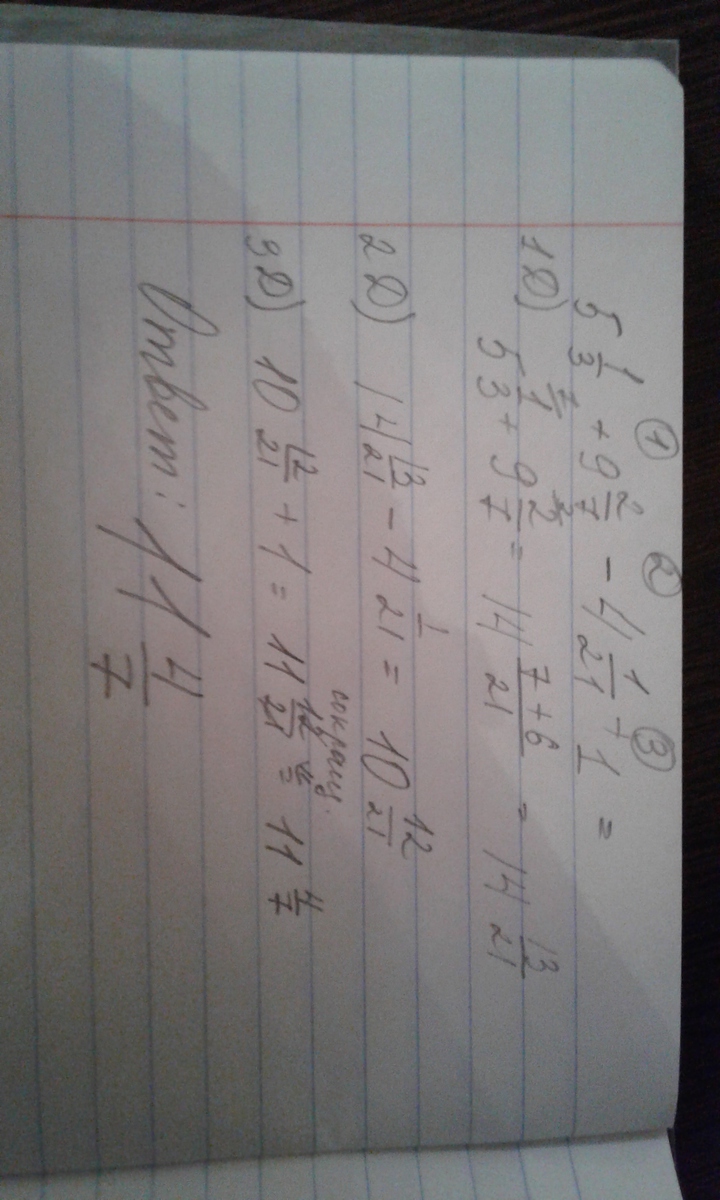 ① ② ③
5 1/3 + 9 2/7 - 4 1/21 + 1 =
1Д) 5 1/3 + 9 2/7 = 14 7+6/21 = 14 13/21
2Д) 14 13/21 - 4 1/21 = 10 12/21
сокращ.
3Д) 10 12/21 + 1 = 11 12/21 = 11 4/7
Ответ: 11 4/7